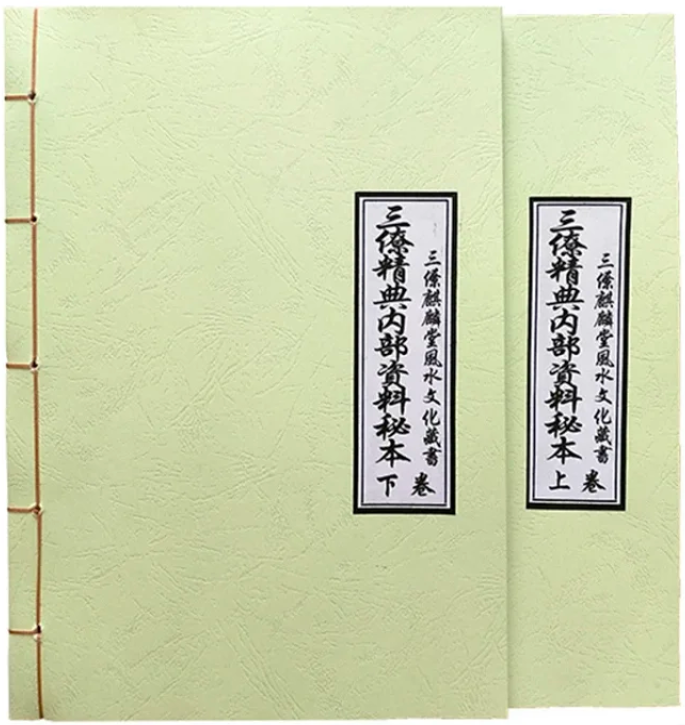 三僚麒麟堂風水文化藏書
三僚精典内部資料秘本
下卷
三僚麒麟堂風水文化藏書
三僚精典内部資料秘本
上卷